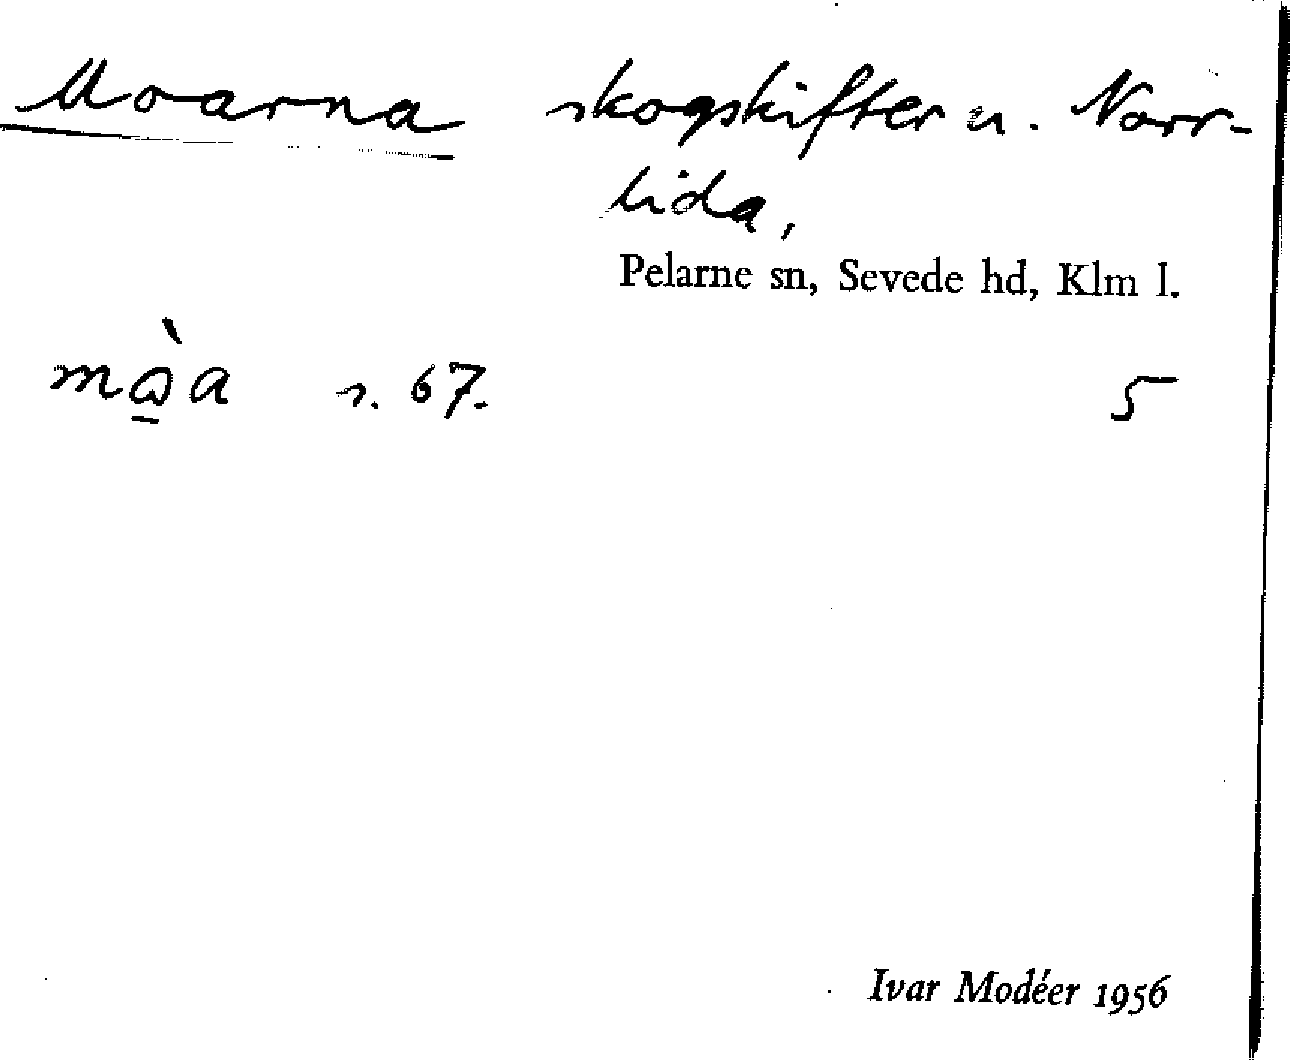 Moarna skogskifter u. Norr-
lida,
Pelarne sn, Sevede hd, Klm l.
s. 67. 5
Ivar Modéer 1956